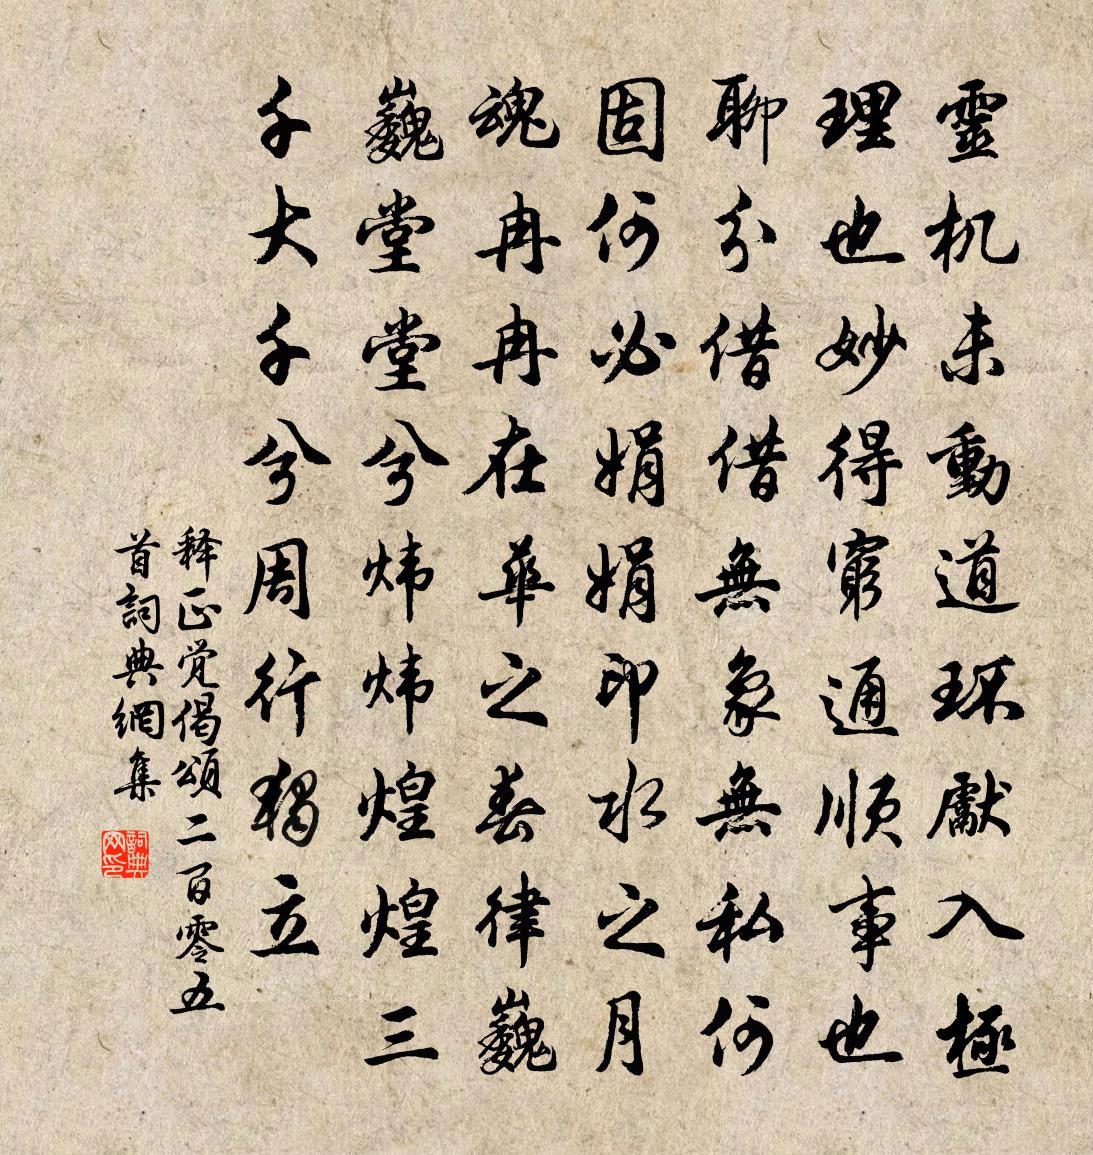 靈机未動道环獻入極
理也妙得窮通順事也
聊分借借無象無私何
固何必娟娟印水之月
魂冉冉在華之春律巍
巍堂堂兮炜炜煌煌三
千大千兮周行獨立
释正觉偈頌二百零五
首詞典網集
詞典网印